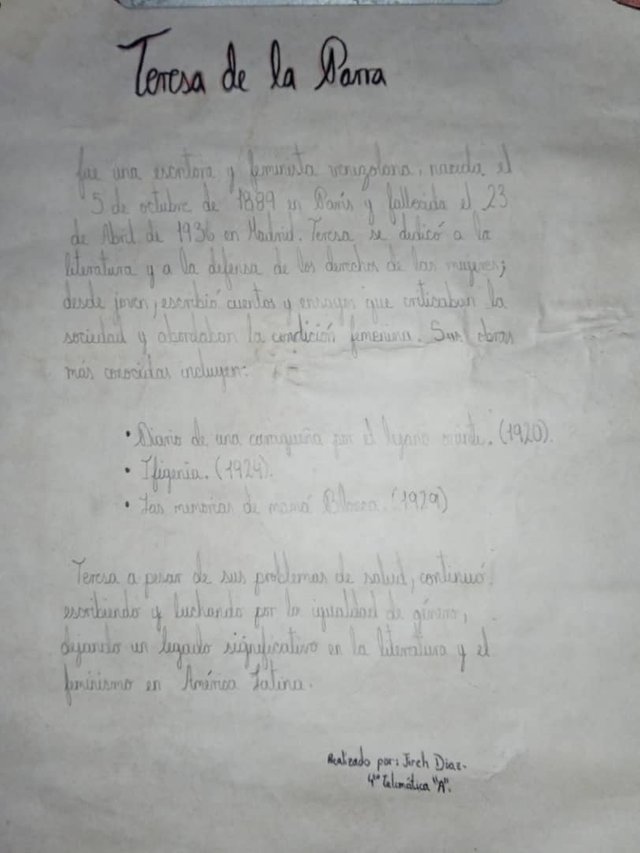 Teresa de la Parra
fue una escritora y feminista venezolana, nacida el
5 de octubre de 1889 en París y fallecida el 23
de Abril de 1936 en Madrid. Teresa se dedicó a la
literatura y a la defensa de los derechos de las mujeres;
desde joven, escribió cuentos y ensayos que criticaban la
sociedad y abordaban la condición femenina. Sus obras
más conocidas incluyen:
• Diario de una caraqueña por el lejano oriente. (1920).
• Ifigenia. (1924).
• Las memorias de mamá Blanca. (1929)
Teresa a pesar de sus problemas de salud, continuó
escribiendo y luchando por la igualdad de género,
dejando un legado significativo en la literatura y el
feminismo en América Latina.
Realizado por: Jireh Díaz.
4to Telimática "A".